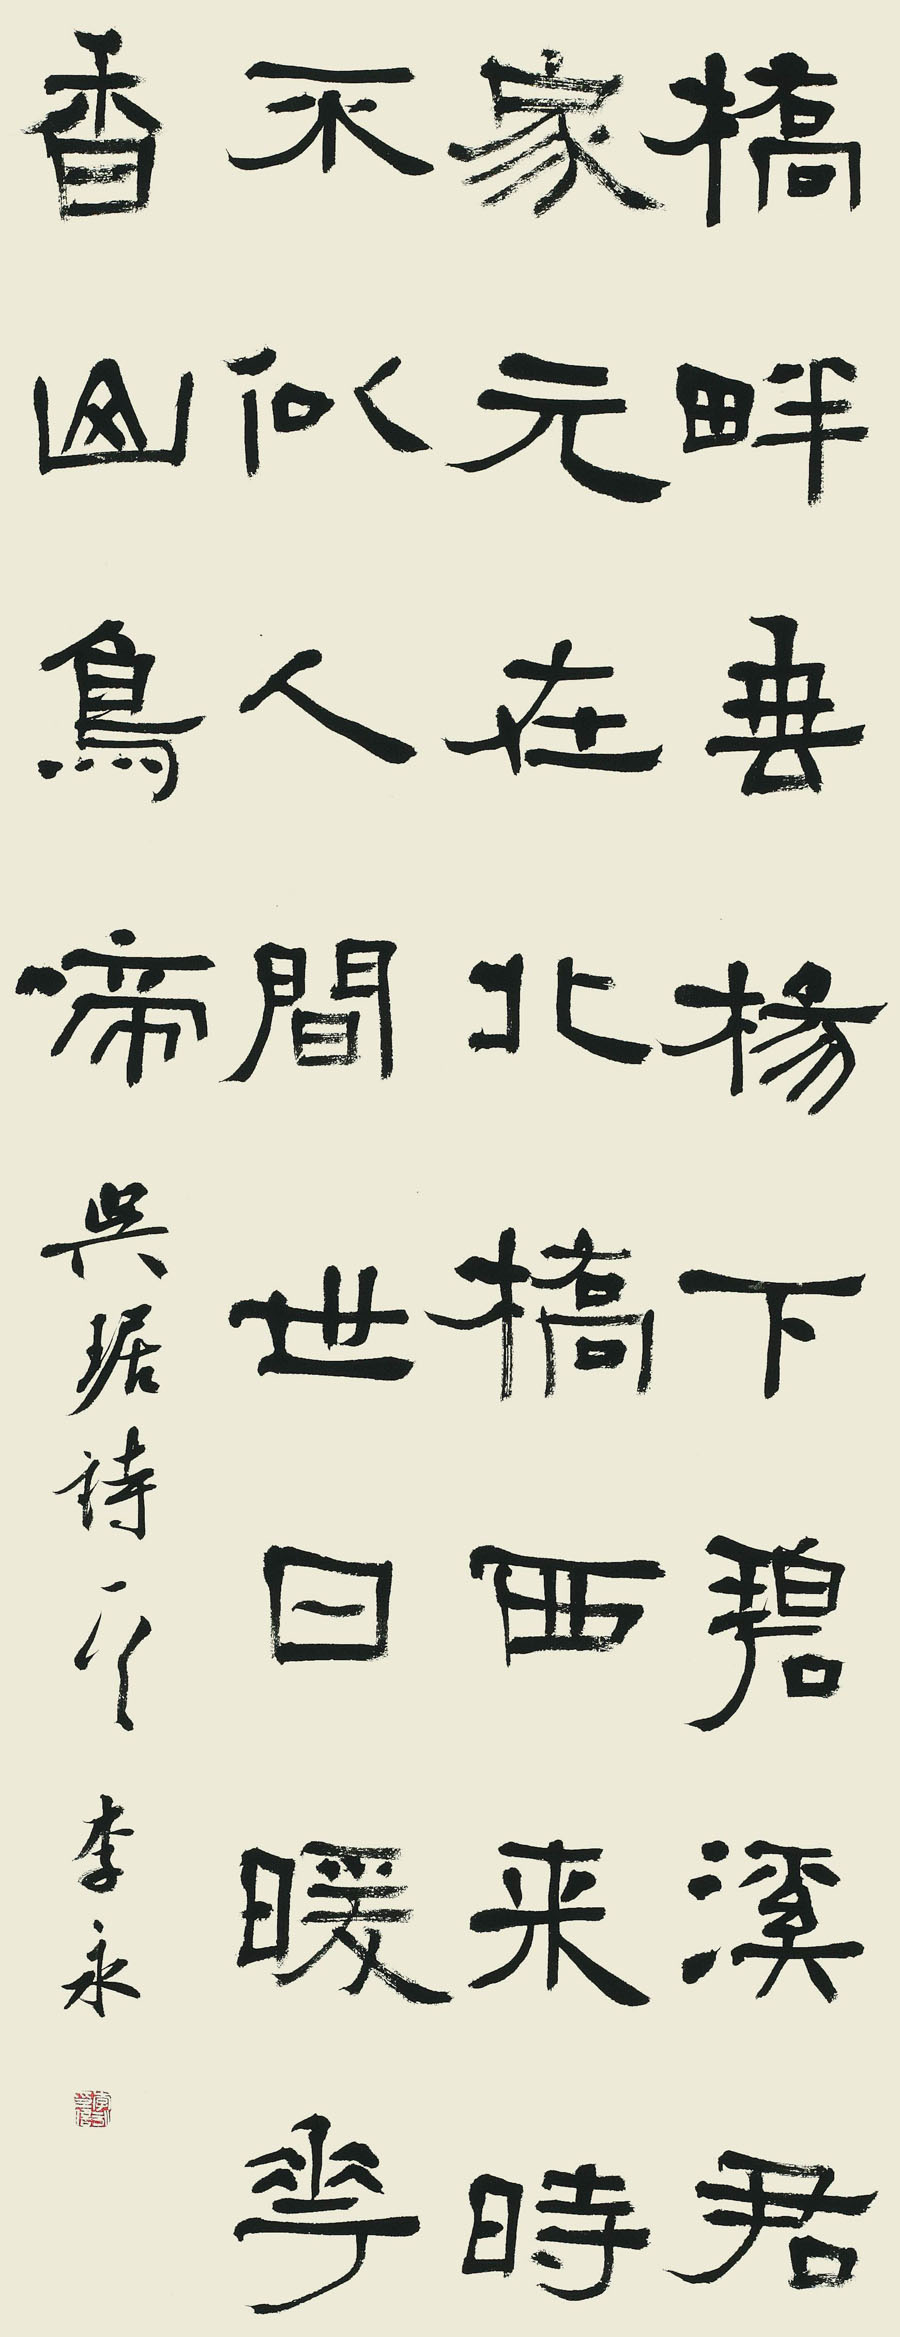 橋畔垂楊下碧溪君
家元在北橋西来時
不似人間世日暖花
香山鳥啼吳琚詩一首李永